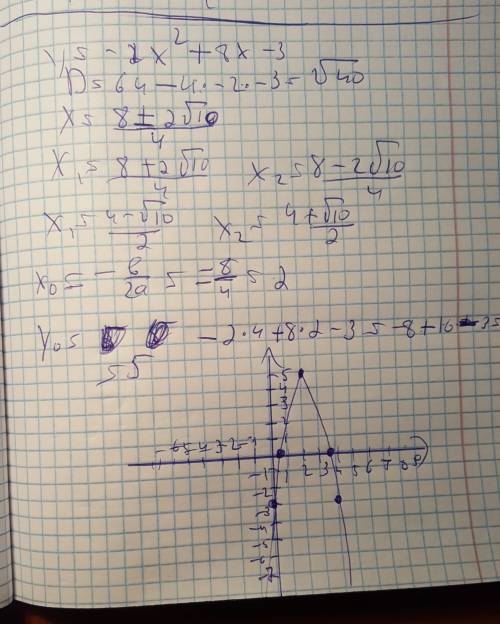 y = -2x² + 8x - 3
D = 64 - 4·-2·-3 = √40
x = (8 ± 2√10)/4
x₁ = (8 + 2√10)/4   x₂ = (8 - 2√10)/4
x₁ = (4 - √10)/2   x₂ = (4 + √10)/2
x₀ = -в/2a = -8/-4 = 2
y₀ = -2·4 + 8·2 - 3 = -8 + 16 - 3 =
= 5
5
3
2
-6 -5 -4 -3 -2 -1
1 2 3 4 5 6 7 8 9
-1
-2
-3
-5
-6
-7